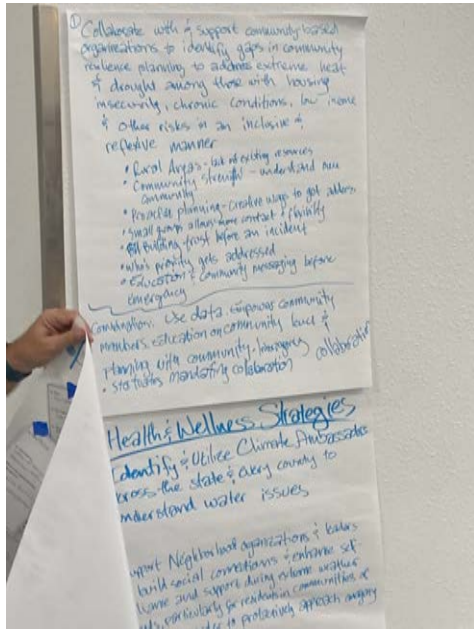 ①
Collaborate with & support community-based
organizations to identify gaps in community
resilience planning to address extreme heat
& drought among those with housing
insecurity, chronic conditions, low income
& other risks in an inclusive &
manner
• Rural Areas - lack of existing resources
• Community strength - understand
community
• Proactive planning - creative ways to get
• Small groups allows more contact &
• Building trust before an incident
• who's priority gets addressed
• Education & community messaging before
emergency
Use data. Empower community
members. education on community level &
Planning with community.
collaboration
• mandating collaboration
Health & Wellness Strategies
Identify & Utilize Climate Ambassadors
across the state & every country to
understand water issues
Neighborhood organizations & leaders
build social connections & enhance self-
and support during extreme weather
particularly for residents in communities of
to proactively approach